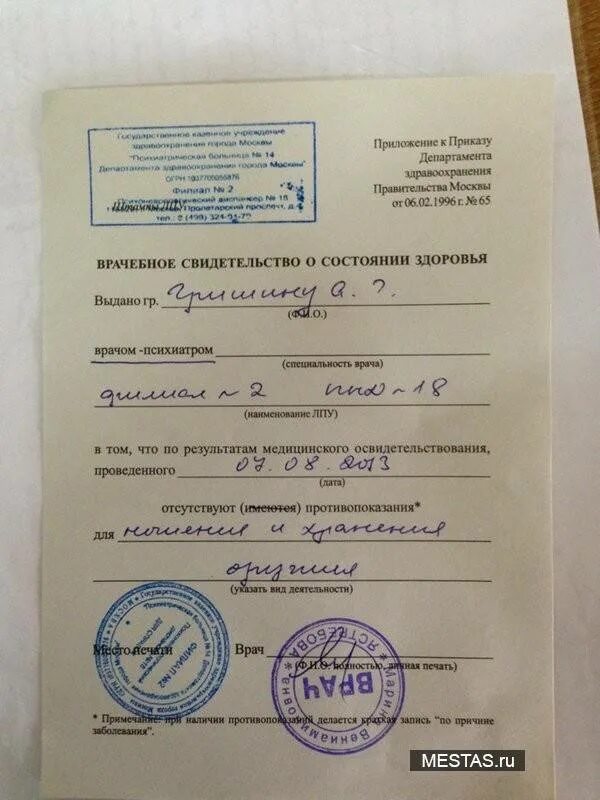 Государственное казенное учреждение
здравоохранения города Москвы
"Психиатрическая больница № 14
Департамента здравоохранения города Москвы"
Филиал № 2
Психоневрологический диспансер № 18
Пролетарский проспект, д.
Штамп ЛПУ
Приложение к Приказу
Департамента
здравоохранения
Правительства Москвы
от 06.02.1996 г. № 65
ВРАЧЕБНОЕ СВИДЕТЕЛЬСТВО О СОСТОЯНИИ ЗДОРОВЬЯ
Выдано гр. Гришину А. Г.
(Ф.И.О.)
врачом -психиатром
(специальность врача)
филиал №2 ПНД №18
(наименование ЛПУ)
в том, что по результатам медицинского освидетельствования,
проведенного 07.08.2013
(дата)
отсутствуют (имеются) противопоказания*
для ношения и хранения
оружия
(указать вид деятельности)
Место печати
ФИЛИАЛ №2
Врач
(Ф.И.О. полностью, личная печать)
ЯСТРЕБОВА
ВРАЧ
* Примечание: при наличии противопоказаний делается краткая запись "по причине
заболевания".
MESTAS.ru